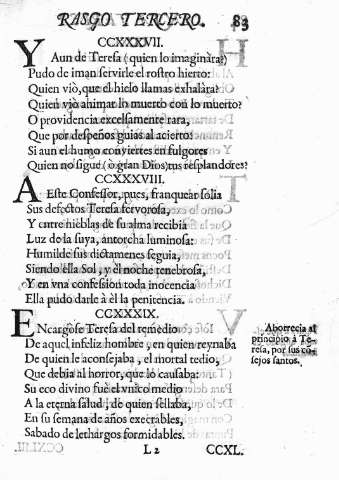 RASGO TERCERO. 83
CCXXXVII.
Y Aun de Teresa (quien lo imaginàra?)
Pudo de iman servirle el rostro hierto:
Quien viò, que el hielo llamas exhalàra?
Quien viò animar lo muerto con lo muerto?
O providencia excelsamente rara,
Que por despeños guias al acierto:
Si aun el humo conviertes en fulgores
Quien no sigue (ò gran Dios) tus resplandores?
CCXXXVIII.
A Este Confessor, pues, franquear solia
Sus defectos Teresa fervorosa,
Y entre nieblas de su alma recibia
Luz de la suya, antorcha luminosa:
Humilde sus dictamenes seguia,
Siendo ella Sol, y èl noche tenebrosa,
Y en vna confession toda inocencia
Ella pudo darle à èl la penitencia.
CCXXXIX.
ENcargòse Teresa del remedio
De aquel infeliz hombre, en quien reynaba
De quien le aconsejaba, el mortal tedio,
Que debia al horror, que lo causaba:
Su eco divino fuè el vnico medio
A la eterna salud, de quien sellaba,
En su semana de años execrables,
Sabado de lethargos formidables.
Aborrecia al
principio à Te-
resa, por sus co-
sejos santos.
L2 CCXL.